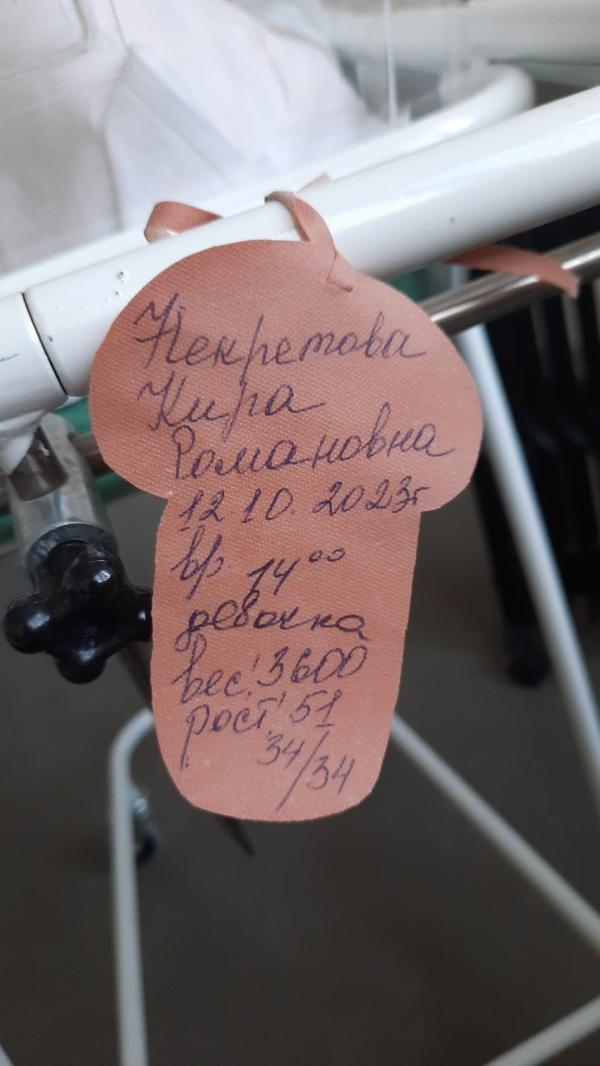 Некретова
Кира
Романовна
12.10.2023г
вр 14⁰⁰
девочка
вес: 3600
рост: 51
34/34